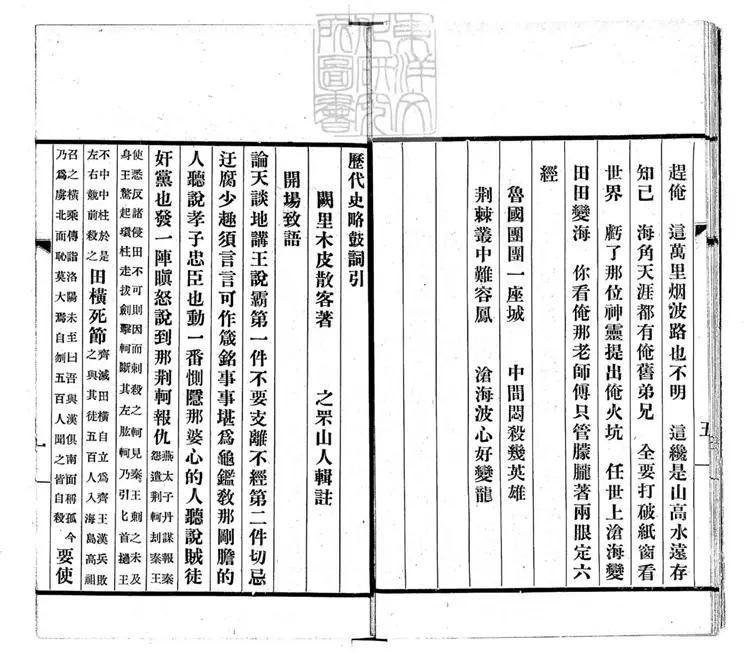 趕俺　這萬里烟波路也不明　這纔是山高水遠存
知己　海角天涯都有俺舊弟兄　全要打破紙窗看
世界　虧了那位神靈提出俺火坑　任世上滄海變
田田變海　你看俺那老師傅只管朦朧著兩眼定六
經
魯國團團一座城　中間悶殺幾英雄
荆棘叢中難容鳳　滄海波心好變龍
五
歷代史略鼓詞引
闕里木皮散客著　之罘山人輯註
開場致語
論天談地講王說霸第一件不要支離不經第二件切忌
迂腐少趣須言言可作箴銘事事堪爲龜鑑敎那剛膽的
人聽說孝子忠臣也動一番惻隱那婆心的人聽說賊徒
奸黨也發一陣瞋怒說到那荆軻報仇燕太子丹謀報秦怨遣荆軻刦秦王
使悉反諸侵田不可則因而刺殺之軻見秦王刺之未及身王驚起環柱走拔劍擊軻斷其左肱軻乃引匕首擿王
不中中柱於是左右競前殺之田橫死節齊滅田橫自立爲齊王漢兵敗之與其徒五百人入海島高祖
召之橫乘傳詣洛陽未至曰吾與漢俱南面稱孤今乃爲虜北面恥莫大焉自刎五百人聞之皆自殺要使
東洋文化研究所圖書